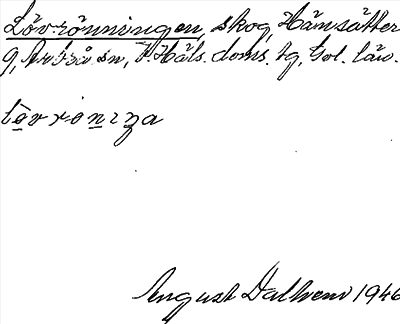 Lövrönningen, skog, Hämsätter
9, Arbrå sn, V. Häls. doms. tg, Gvl. län.
August Dalhem 1946